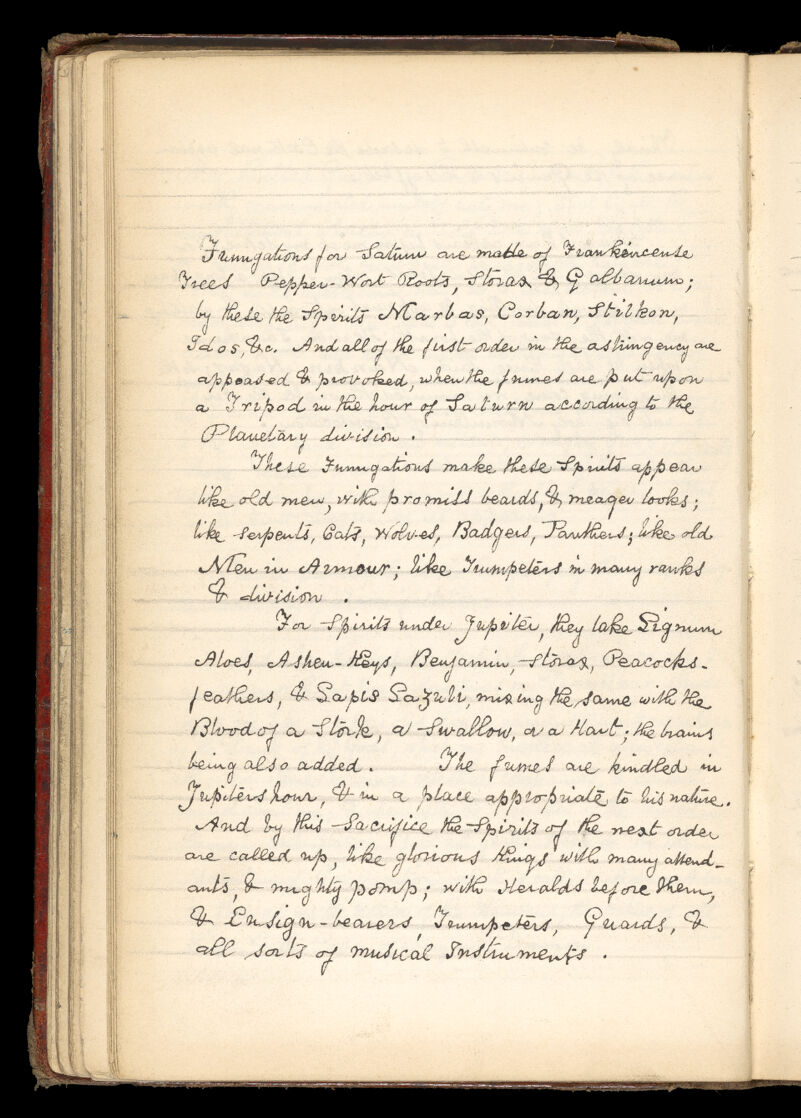 Fumigations for Saturn are made of Frankincense
Trees Pepper-Wort Roots, Storax & Galbanum;
by these the Spirits Marbas, Corban, Stilkon,
Idos, &c. And all of the first order in the astringency are
appeased & provoked, when the fumes are put upon
a Tripod in the hour of Saturn according to the
Planetary division.
These Fumigations make these Spirits appear
like old men, with promiss beards, & meager looks;
like serpents, Cats, Wolves, Badgers, Panthers; like old
Men in Armour; like Trumpeters in many ranks
& division.
For Spirits under Jupiter, they take Lignum
Aloes, Ashen-Keys, Benjamin, Storax, Peacocks-
feathers, & Lapis Lazuli, mixing the same with the
Blood of a Stork, a Swallow, or a Hart; the brains
being also added. The fumes are kindled in
Jupiters hour, & in a place appropriate to his nature.
And by this Sacrifice the Spirits of the next order
are called up, like glorious Kings with many attend-
ants, & mighty pomp; with Heralds before them,
& Ensign-bearers, Trumpeters, Guards, &
all sorts of musical Instruments.